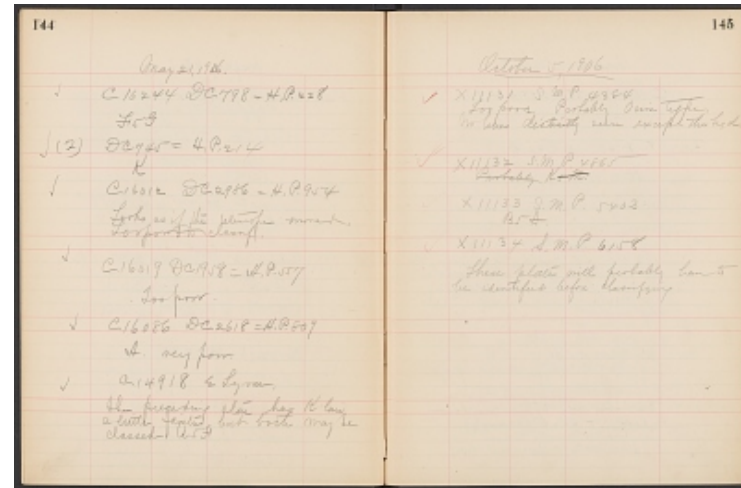 144
May 21, 1906.
C 16244 DC 798 = H.P. 228
F5G
(2) DC 945 = H.P. 214
K
C 16012 DC 2986 = H.P. 954
Looks as if the moved.
Too poor to classify.
C 16019 DC 1958 = H.P. 557
Too poor.
C 16086 DC 2618 = H.P. 809
A. very poor
C 14918 ε Lyrae.
The preceding plate has K line
a little but both may be
classed A5F
145
October 5, 1906
X 11131 S.M.P. 4364
Too poor. Probably Orion Type.
No lines distinctly seen except the hydr
X 11132 S.M.P. 4865
Probably K
X 11133 S.M.P. 5402
B5
X 11134 S.M.P. 6158
These plates will probably have to
be identified before classifying